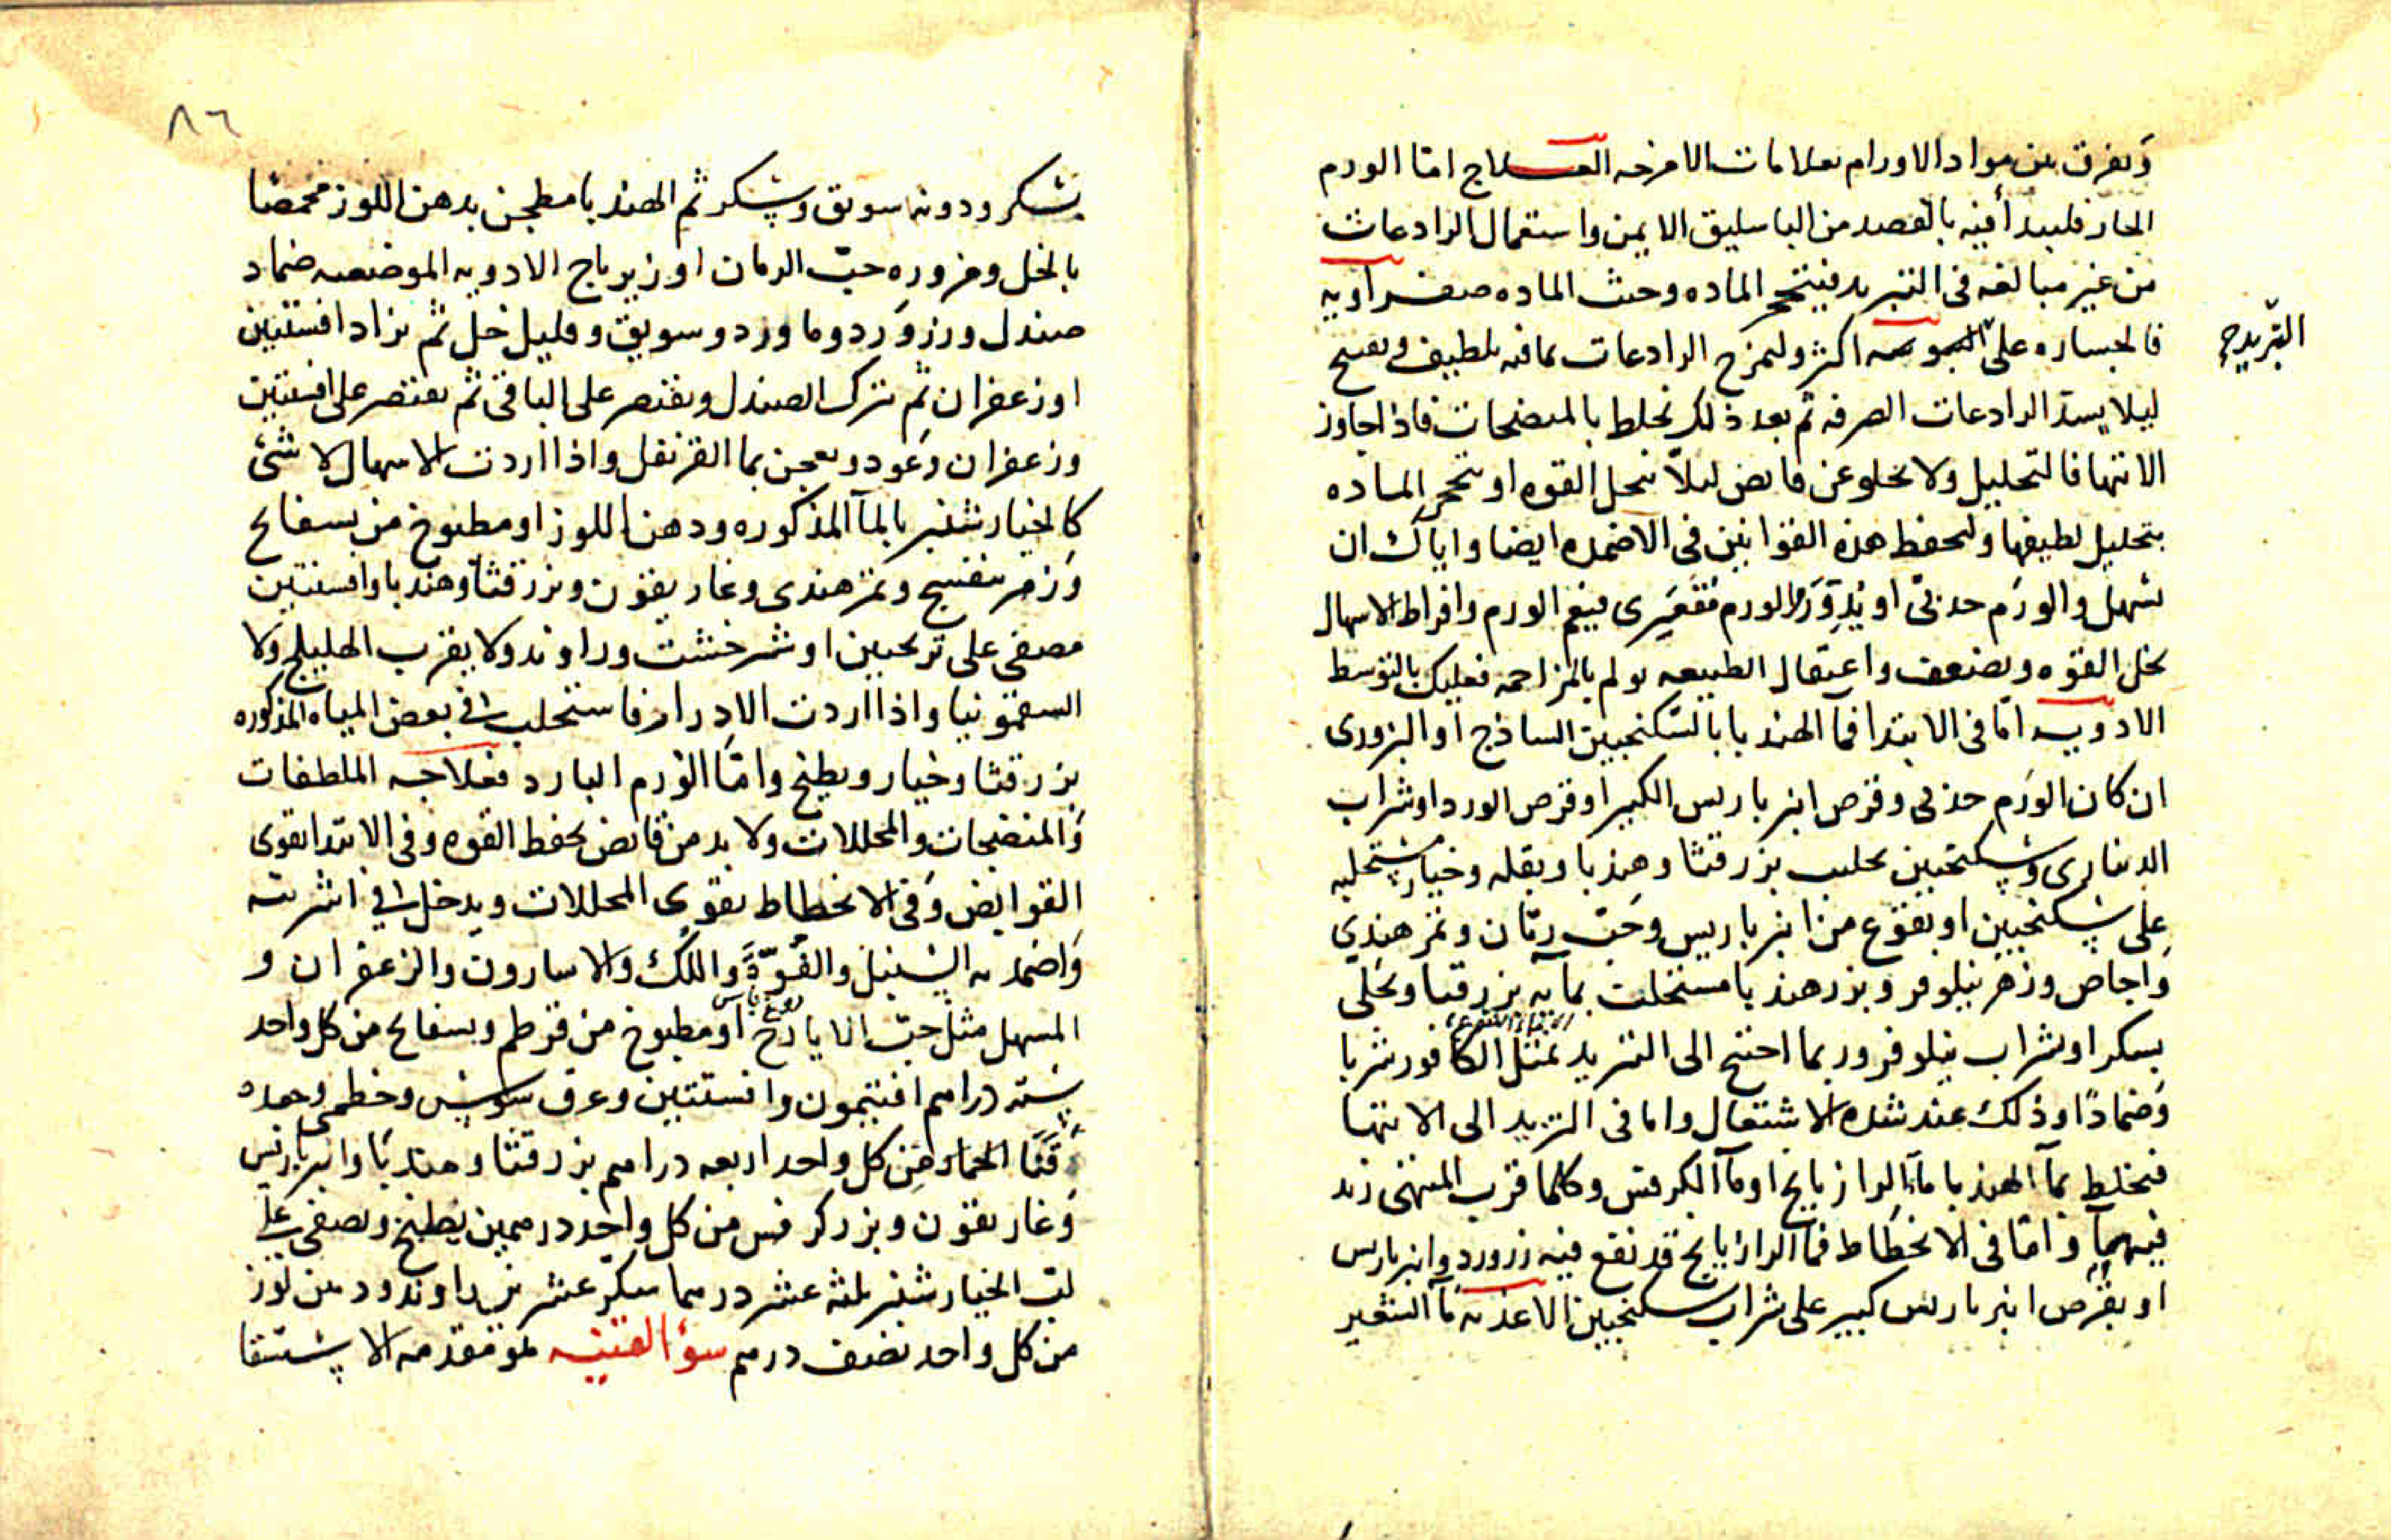 ويفرق بين مواد الاورام بعلامات الامزجه العــلاج اما الورم
الحار فليبدأ فيه بالفصد من الباسليق الايمن واستعمال الرادعات
من غير مبالغه فى التبريد فيتحجر الماده وحيث الماده صفراويه
فالجساره على اكثر وليمزج الرادعات بما فيه تلطيف وتفتيح
التبريد صح
ليلا يسد الرادعات الصرفه ثم بعد ذلك تخلط بالمنضجات فاذا جاوز
الانتها فالتحليل ولا يخلو عن قابض ليلا تنحل القوه او تتحجر الماده
بتحليل لطيفها ولتحفظ هذه القوانين فى الاضمده ايضا واياك ان
تسهل والورم حدبى او تدر والورم مقعرى فيعم الورم وافراط الاسهال
يحل القوه ويضعف واعتقال الطبيعه يولم بالمزاحمه فعليك بالتوسط
الادويه اما فى الابتدا فمآ الهندبا بالسكنجبين الساذج او البزورى
ان كان الورم حدبى وقرص انبرباريس الكبير او قرص الورد او شراب
الدينارى وسكنجبين بحليب بزرقثا وهندبا وبقله وخيار مستحلبه
على سكنجبين او بنقوع من انبرباريس وحب رمان وتمرهندي
واجاص وزهر نيلوفر وبزر هندبا مستحلب بمآيه بزرقثا ويحلى
بسكر او شراب نيلوفر وربما احتيج الى التبريد بمثل الكافور شربا
وضمادًا وذلك عند شده الاشتعال واما فى التزيد الى الانتها
فيخلط بمآ الهندبا مآ الرازيانج او مآ الكرفس وكلما قرب المنتهى زيد
فيهما واما فى الانحطاط فمآ الرازيانج قد نقع فيه زرورد وانبرباريس
او بقرص انبرباريس كبير على شراب سكنجبين الاغذيه مآ الشعير
٨٦
بسكر ودونه سويق وسكر ثم الهندبا مطجن بدهن اللوز محمضا
بالخل ومزوره حب الرمان او زيرباج الادويه الموضعيه ضماد
صندل وزرورد وماورد وسويق وقليل خل ثم يزاد افسنتين
او زعفران ثم يترك الصندل ويقتصر على الباقى ثم يقتصر على افسنتين
وزعفران وعود ويعجن بما القرنفل واذا اردت الاسهال لا شئ
كالخيارشنبر بالمآ المذكوره ودهن اللوز او مطبوخ من بسفايج
وزهر بنفسج وتمرهندى وغاريقون وبزرقثا وهندبا وافسنتين
مصفى على ترنجبين او شيرخشت وراوند ولا يقرب الهليلج ولا
السقمونيا واذا اردت الادرار فاستحلب فى بعض المياه المذكوره
بزرقثا وخيار وبطيخ واما الورم البارد فعلاجه الملطفات
والمنضجات والمحللات ولا بد من قابض يحفظ القوه وفى الابتدا تقوى
القوابض وفى الانحطاط تقوى المحللات ويدخل فى اشربته
واضمدته السنبل والفوّة واللك والاسارون والزعفران و
المسهل مثل حب الايارج او مطبوخ من قرطم وبسفايج من كل واحد
سته دراهم افتيمون وافسنتين وعرق سوس وخطمى وجعده
وقثا الحمار من كل واحد اربعه دراهم بزرقثا وهندبا وانبرباريس
وغاريقون وبزر كرفس من كل واحد درهمين يطبخ ويصفى على
لب الخيارشنبر ثلثه عشر درهما سكر عشرين راوند ودهن لوز
من كل واحد نصف درهم سؤ القنيه هو مقدمه الاستسقا